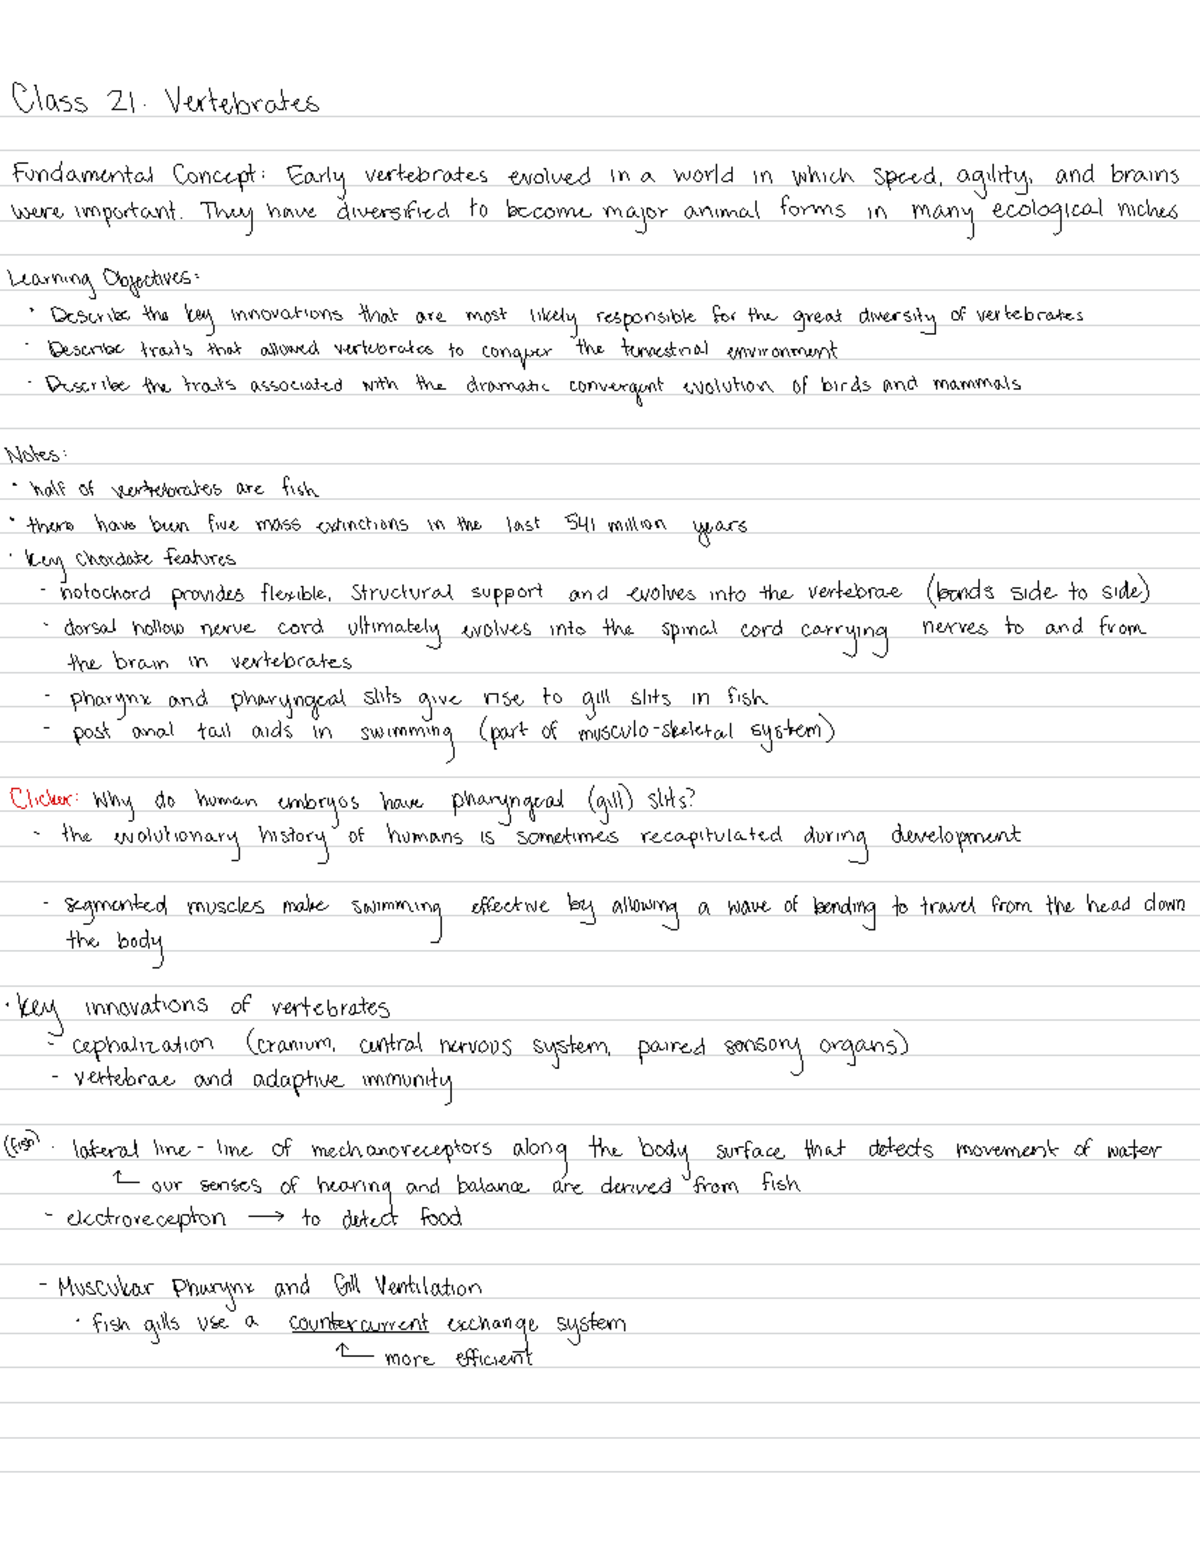 Class 21. Vertebrates
Fundamental Concept: Early vertebrates evolved in a world in which speed, agility, and brains
were important. They have diversified to become major animal forms in many ecological niches
Learning Objectives:
· Describe the key innovations that are most likely responsible for the great diversity of vertebrates
· Describe traits that allowed vertebrates to conquer the terrestrial environment
· Describe the traits associated with the dramatic convergent evolution of birds and mammals
Notes:
· half of vertebrates are fish
· there have been five mass extinctions in the last 541 million years
· key Chordate features
- notochord provides flexible, structural support and evolves into the vertebrae (bends side to side)
- dorsal hollow nerve cord ultimately evolves into the spinal cord carrying nerves to and from
the brain in vertebrates
- pharynx and pharyngeal slits give rise to gill slits in fish
- post anal tail aids in swimming (part of musculo-skeletal system)
Clicker: Why do human embryos have pharyngeal (gill) slits?
- the evolutionary history of humans is sometimes recapitulated during development
- segmented muscles make swimming effective by allowing a wave of bending to travel from the head down
the body
· key innovations of vertebrates
- cephalization (cranium, central nervous system, paired sensory organs)
- vertebrae and adaptive immunity
(fish) · lateral line - line of mechanoreceptors along the body surface that detects movement of water
↑ our senses of hearing and balance are derived from fish
- electrorecepton → to detect food
- Muscukar Pharynx and Gill Ventilation
· fish gills use a countercurrent exchange system
↑ more efficient